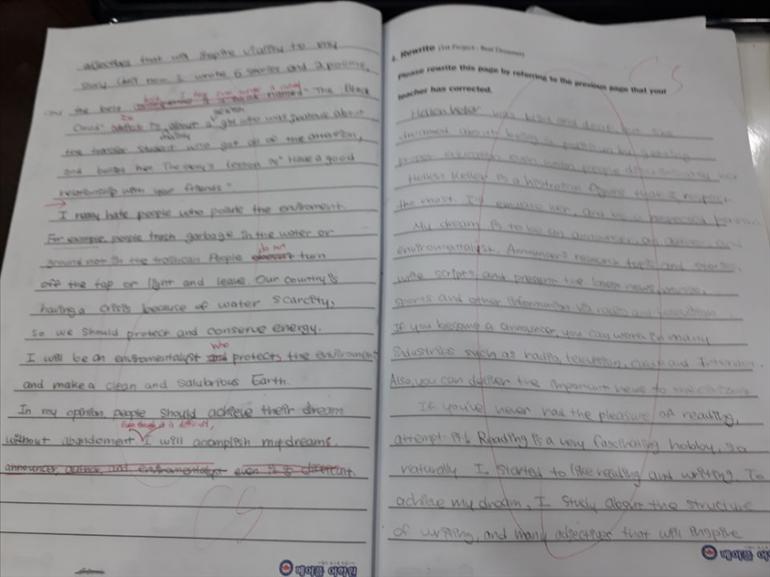 adjectives that will inspire vitality to my
story. Until now I wrote 6 stories and a poetime,
and the best book I have ever write is called "The Black
Coud". It is about a girl who was jealous about
the transfer student who got all of the attention,
and bullies her. The story's lesson is "Have a good
relationship with your friends."
I really hate people who pollute the enviroment.
For example, people trash garbage in the water or
ground not in the trashcan. People do not turn
off the tap or light and leave. Our country is
having a crisis because of water scarcity,
so we should protect and conserve energy.
I will be an enviromentalyst who protects the enviroment
and make a clean and salubrious Earth.
In my opinion, people should achieve their dream
without abandement. Even though it is difficult, I will acomplish my dreams.
announcer, author and enviromentalyst even it is different.
CS
베이플 어학원
4. Rewrite (1st Project - Best Dreamer)
Please rewrite this page by referring to the previous page that your
teacher has corrected.
CS
Hellen Keller was blind and deaf but she
about being a person
even people her.
Hellen Keller is a historical figure that I respect
the most. I'll emulate her, and be a respected person.
My dream is to be an announcer, an author and
enviromentalyst. Announcers research topics and stories,
write scripts, and present the latest news, weather,
sports and other information via radio and television.
If you become a announcer, you can work in many
industries such as radio, television, and Internet.
Also, you can deliver the important news to
If you've never had the pleasure of reading,
attempt it! Reading is a very fascinating hobby, so
naturally I started to like reading and writing. To
achieve my dream, I study about the structure
of writing, and many adjectives that will inspire
베이플 어학원